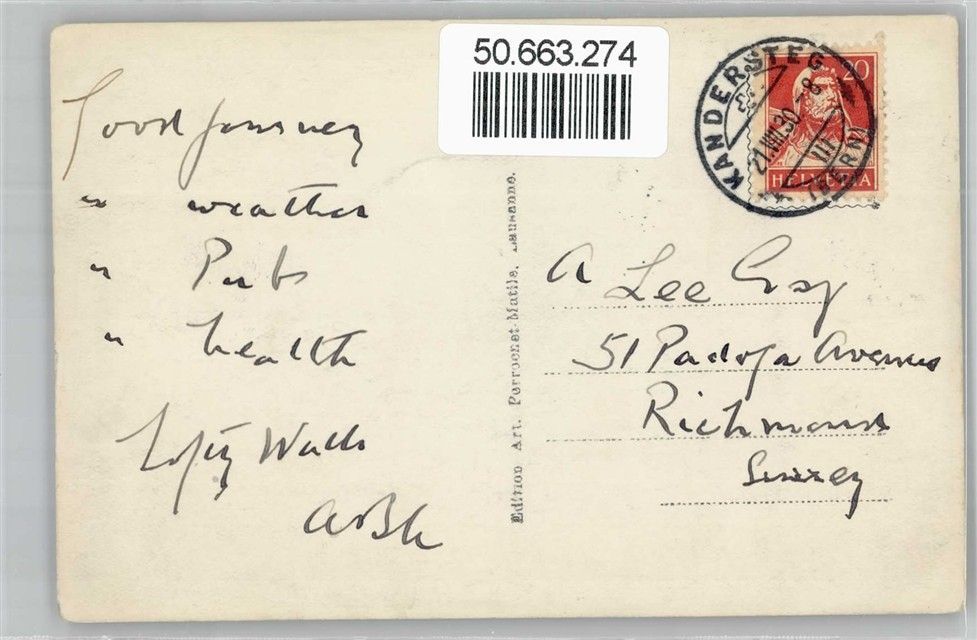 50.663.274
KANDERSTEG
21.VIII.30-8
(BERN)
20
HELVETIA
Good journey
" weather
" Pubs
" health
Lofty Walls
Edition Art. Perrochet-Matile, Lausanne.
A Lee Esq
51 Avenue
Richmond
Surrey